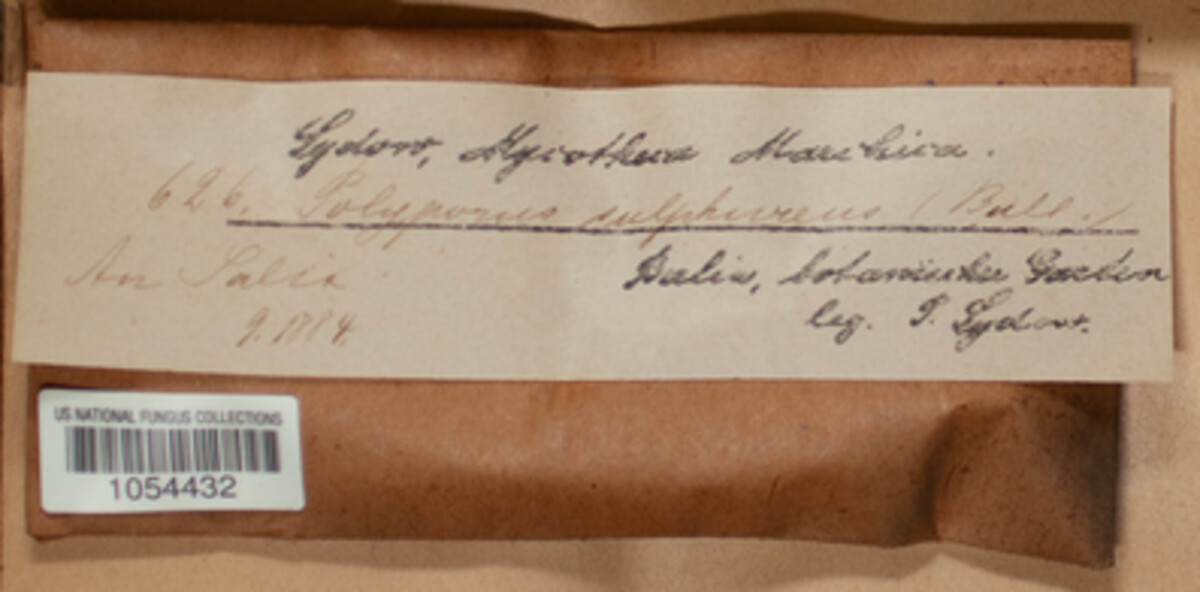 Sydow, Mycotheca Marchica.
626. Polyporus sulphureus (Bull.)
An Salix
9. 1884.
Berlin, botanischer Garten
leg. P. Sydow.
US NATIONAL FUNGUS COLLECTIONS
1054432